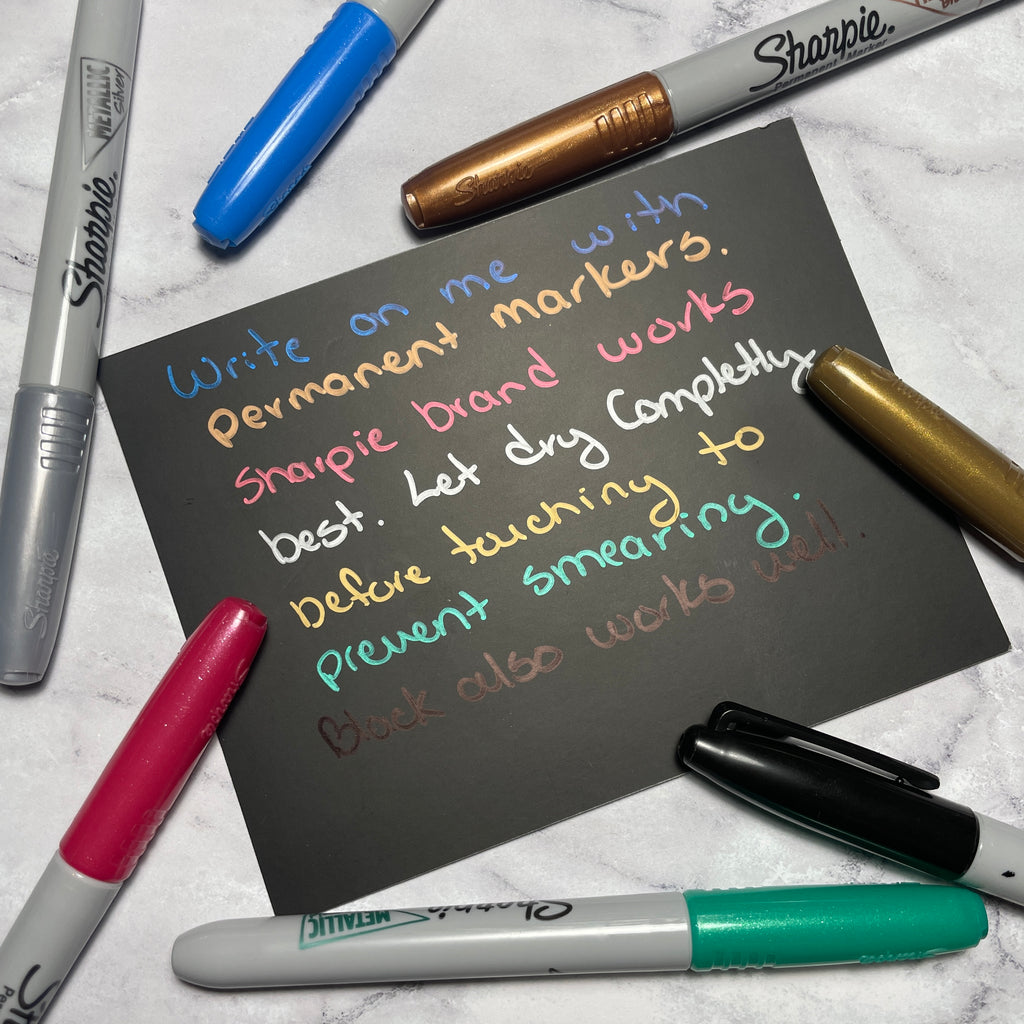 METALLIC
Silver
Sharpie.
Sharpie
Sharpie.
Permanent Marker
Sharpie
Write on me with
permanent markers.
Sharpie brand works
best. Let dry Completly
before touching to
prevent smearing.
Black also works well.
METALLIC
Sharpie